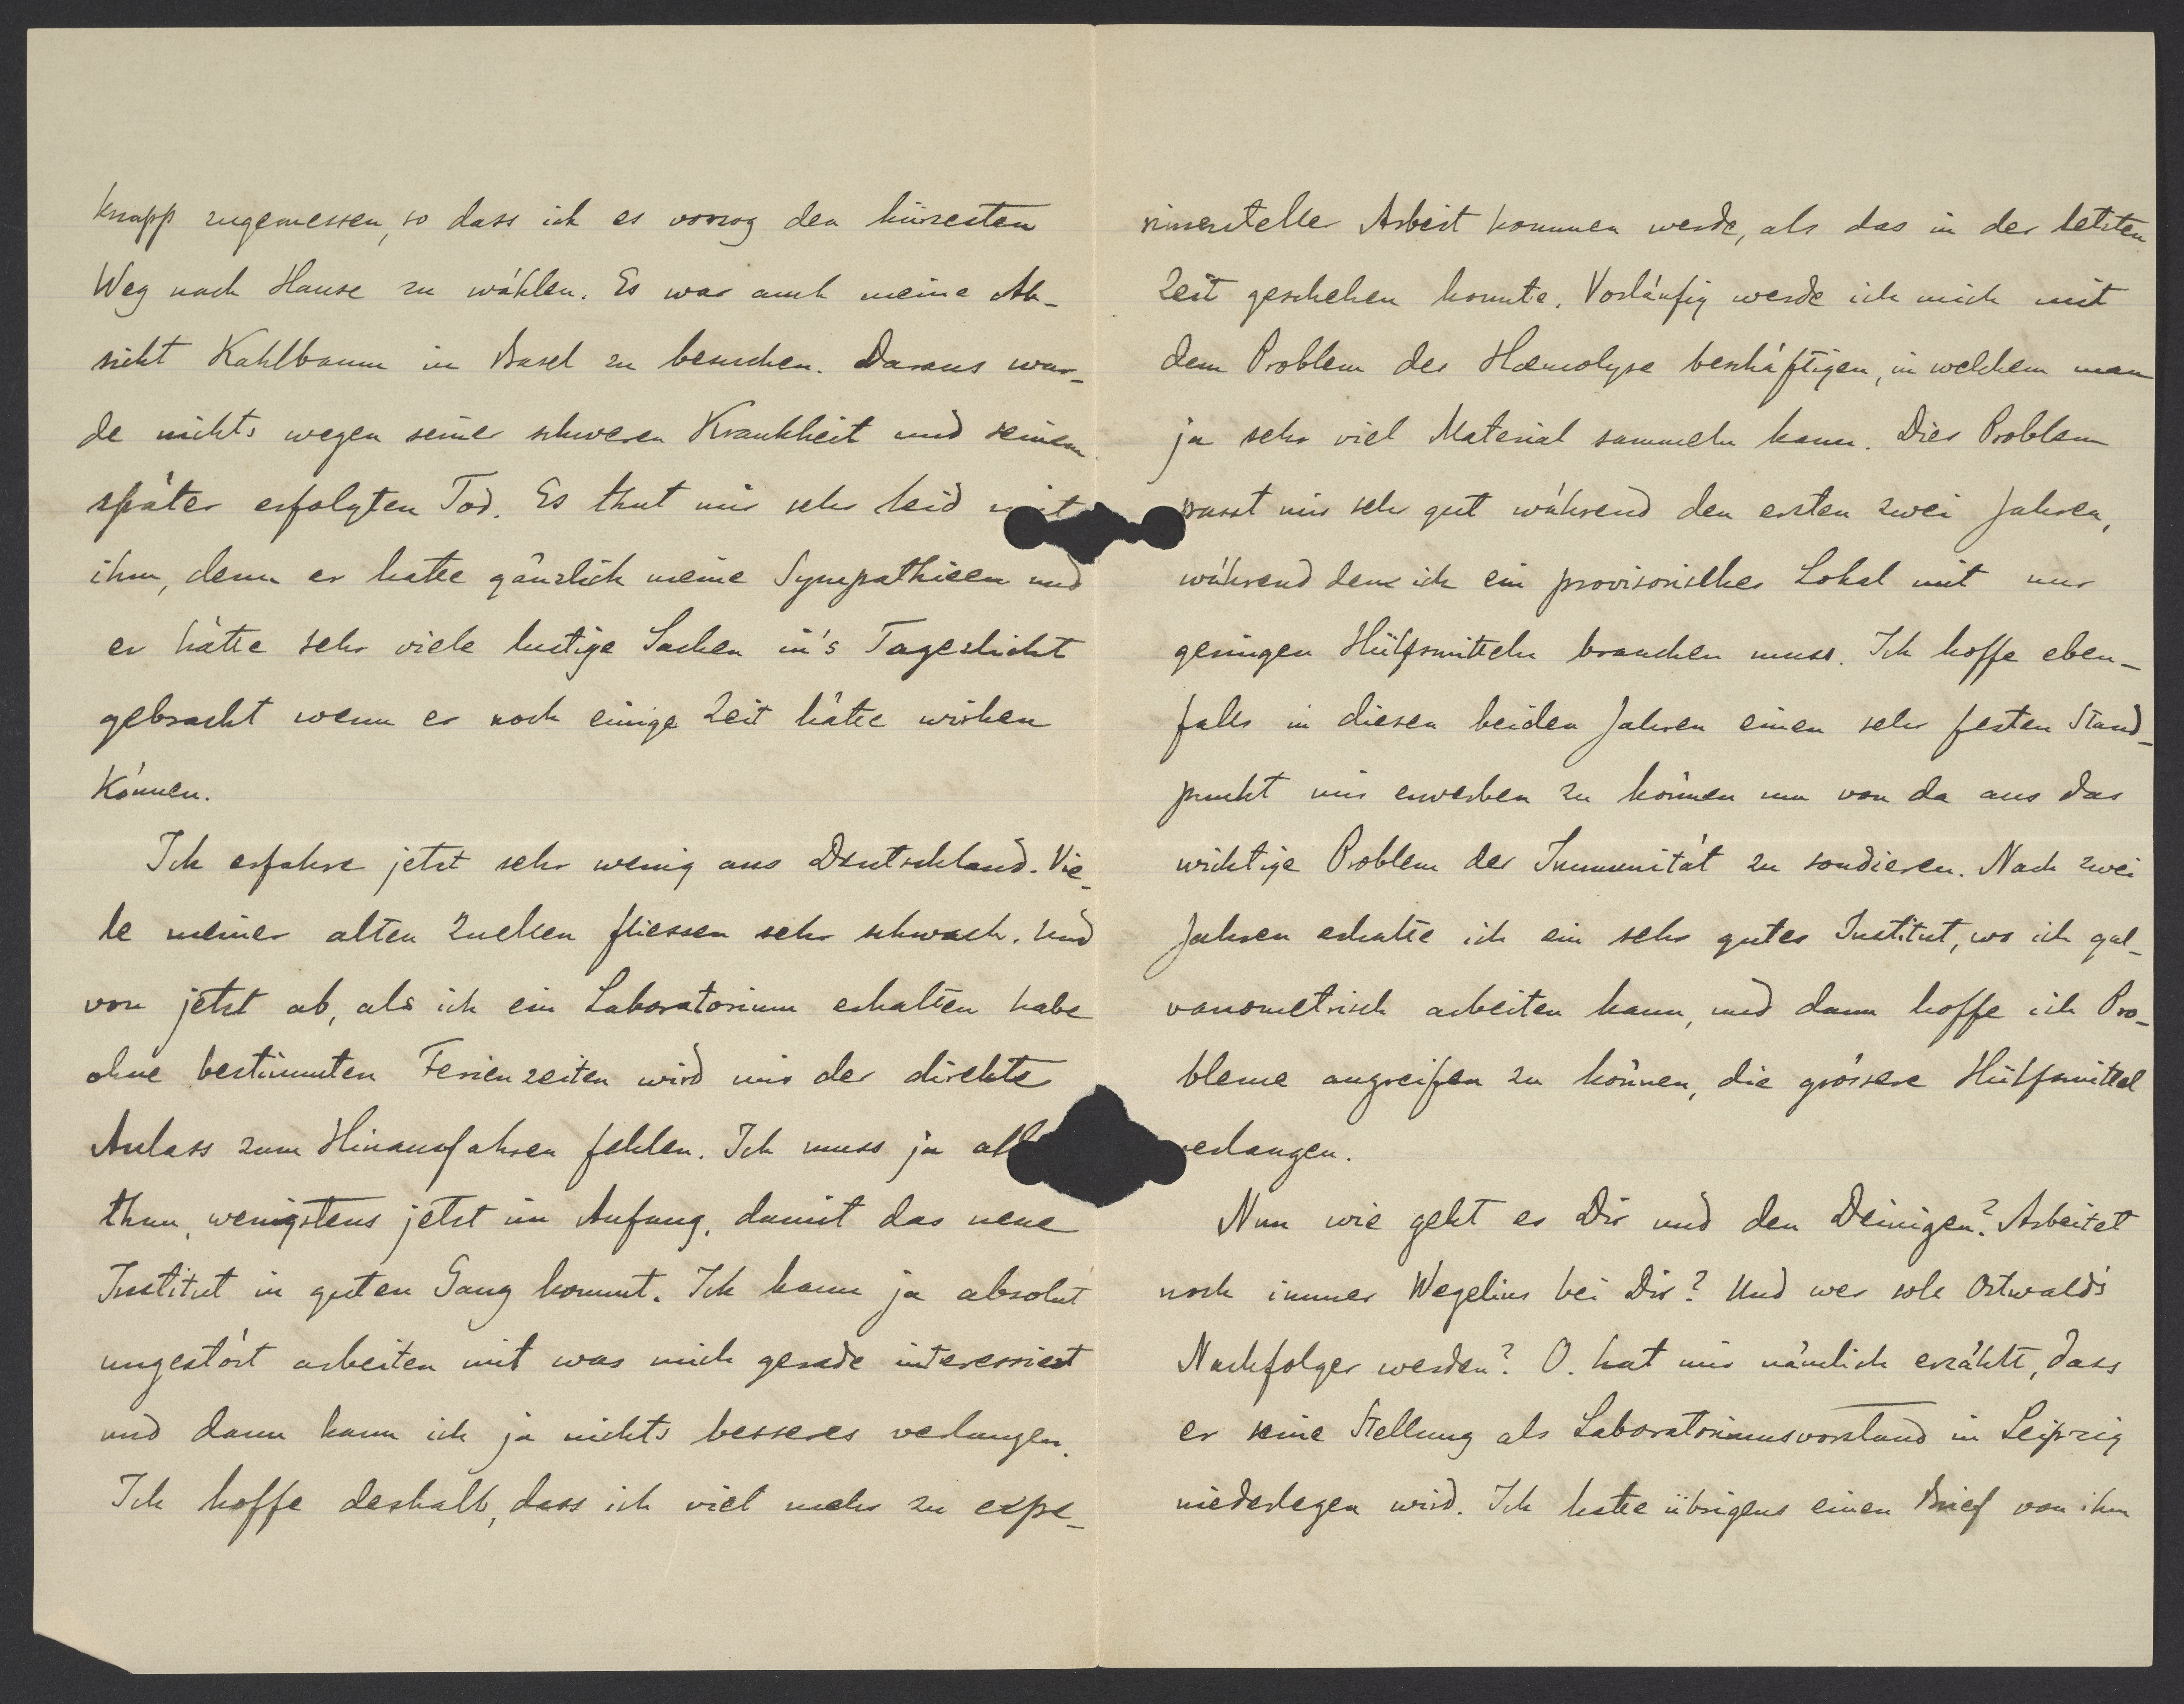 knapp zugemessen, so dass ich es vorzog den kürzesten
Weg nach Hause zu wählen. Es war auch meine Ab-
sicht Kahlbaum in Basel zu besuchen. Daraus wur-
de nichts wegen seiner schweren Krankheit und seinem
später erfolgten Tod. Es thut mir sehr leid mit
ihm, denn er hatte gänzlich meine Sympathieen und
er hätte sehr viele lustige Sachen in's Tageslicht
gebracht wenn er noch einige Zeit hätte wirken
können.
Ich erfahre jetzt sehr wenig aus Deutschland. Vie-
le meiner alten Quellen fliessen sehr schwach. Und
von jetzt ab, als ich ein Laboratorium erhalten habe
ohne bestimmten Ferienzeiten wird mir der direkte
Anlass zum Hinausfahren fehlen. Ich muss ja all
thun, wenigstens jetzt im Anfang, damit das neue
Institut in guten Gang kommt. Ich kann ja absolut
ungestört arbeiten mit was mich gerade interessiert
und dann kann ich ja nichts besseres verlangen.
Ich hoffe deshalb, dass ich viel mehr zu expe-
rimenteller Arbeit kommen werde, als das in der letzten
Zeit geschehen konnte. Vorläufig werde ich mich mit
dem Problem der Hæmolyse beschäftigen, in welchem man
ja sehr viel Material sammeln kann. Dies Problem
passt mir sehr gut während den ersten zwei Jahren,
während denen ich ein provisorisches Lokal mit nur
geringen Hülfsmitteln brauchen muss. Ich hoffe eben-
falls in diesen beiden Jahren einen sehr festen Stand-
punkt mir erwerben zu können um von da aus das
wichtige Problem der Immunität zu sondieren. Nach zwei
Jahren erhalte ich ein sehr gutes Institut, wo ich gal-
vanometrisch arbeiten kann, und dann hoffe ich Pro-
bleme angreifen zu können, die grössere Hülfsmittel
verlangen.
Nun wie geht es Dir und den Deinigen? Arbeitet
noch immer Wegelius bei Dir? Und wer soll Ostwald's
Nachfolger werden? O. hat mir nämlich erzählt, dass
er seine Stellung als Laboratoriumsvorstand in Leipzig
niederlegen wird. Ich hatte übrigens einen Brief von ihm